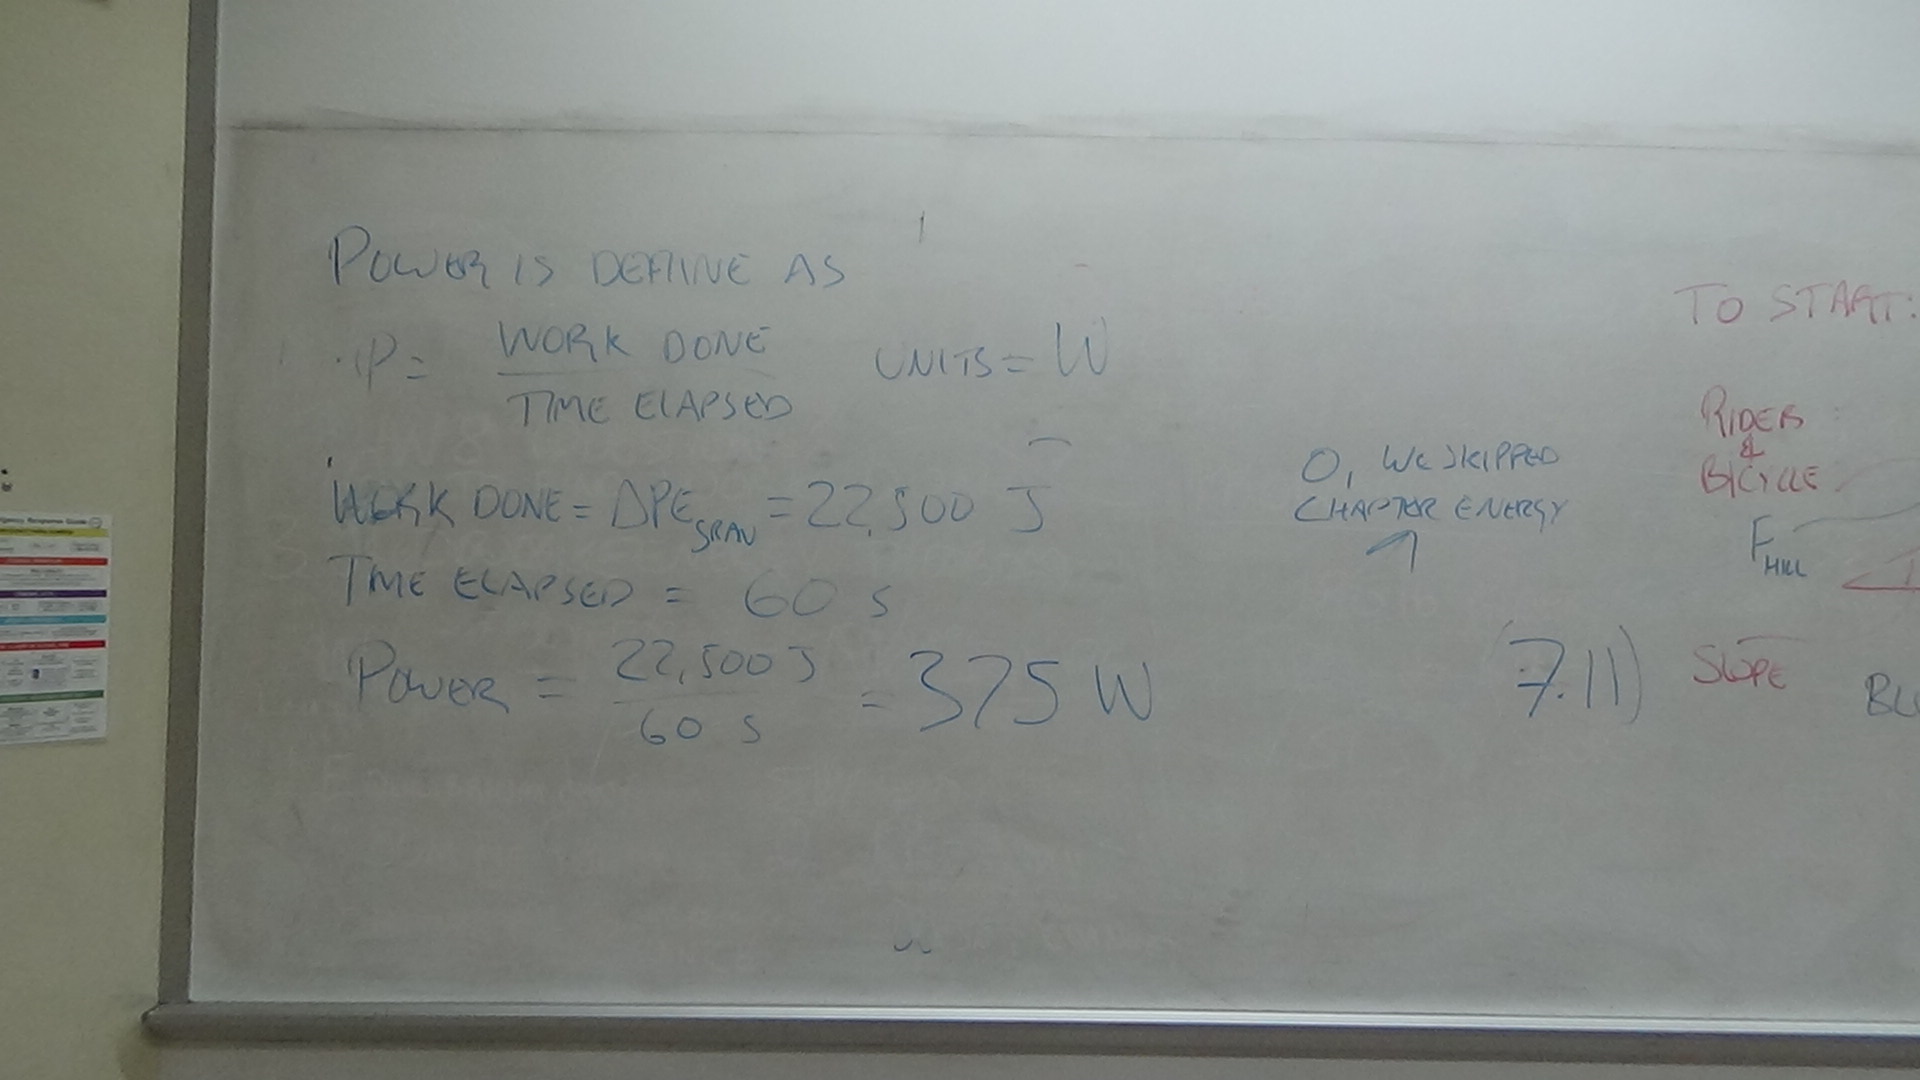 POWER IS DEFINE AS
P = WORK DONE / TIME ELAPSED UNITS = W
WORK DONE = ΔPE GRAV = 22,500 J
TIME ELAPSED = 60 s
POWER = 22,500 J / 60 s = 375 W
O, WE SKIPPED
CHAPTER ENERGY
7.11)
TO START:
RIDER
&
BICYCLE
F HILL
SLOPE